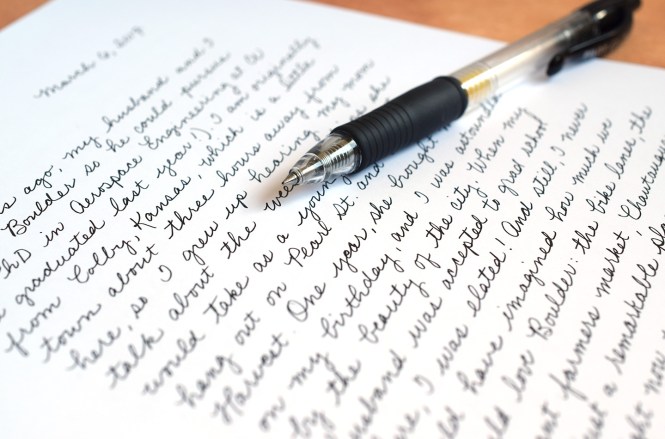 March 6, 2013
s ago, my husband and I
Boulder so he could pursue
PhD in Aerospace Engineering at CU
graduated last year!). I am originally
from Colby, Kansas, which is a little
town about three hours away from
here, so I grew up hearing my mom
talk about the
would take as a young
hang out on Pearl St. and
Harvest. One year, she brought
on my birthday, and I was astounde
by the beauty of the city. When my
husband was accepted to grad school
here, I was elated! And still, I never
ld have imagined how much we
ld love Boulder: the bike lanes, the
farmers market, Chautauqua
st a remarkable pla
ght now